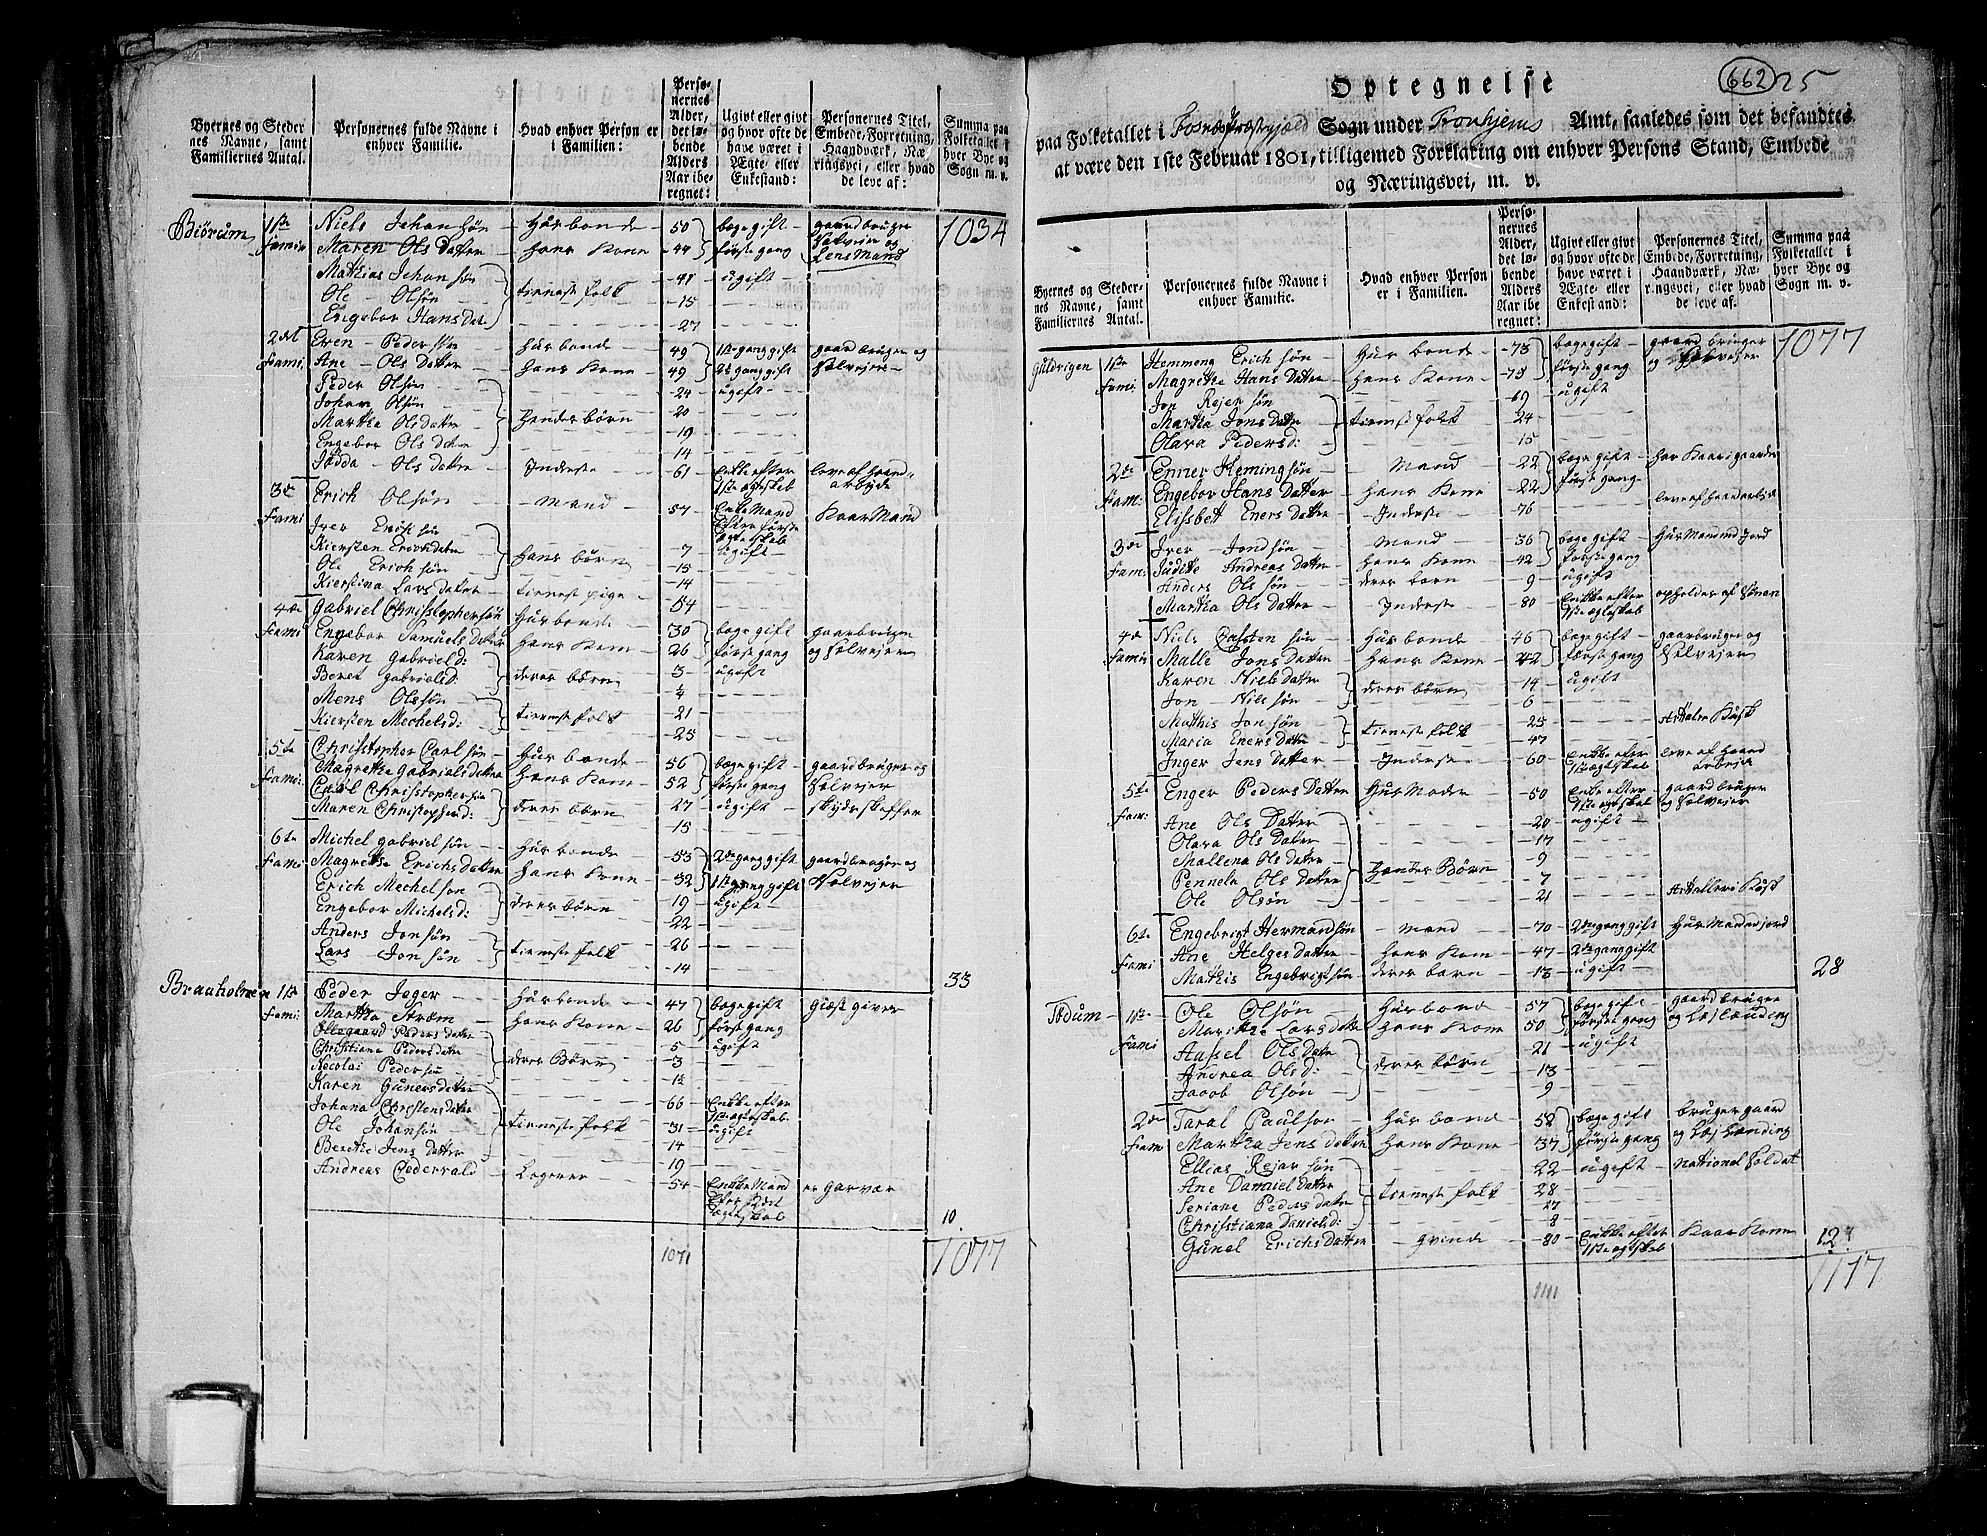 Byernes og Stedernes Navne, samt Familiernes Antal.
Personernes fulde Navne i enhver Familie.
Hvad enhver Person er i Familien:
Personernes Alder, det løbende Alders Aar iberegnet:
Ugivt eller givt og hvor ofte de have været i Ægte- eller Enkestand:
Personernes Titel, Embede, Forretning, Haandværk, Næringsvei, eller hvad de leve af:
Summa paa Folketallet i hver Bye og Sogn m. v.
Biörum 1ste Niels Johan søn Husbonde 50 bege gift gaardbruger 1034
Famie Maren Ols Datter hans Kone 44 første gang Selveier og Lensmand
Mathias Johan søn 41 ugift
Ole Olsøn tieneste folk 15
Engebor Hans Dat 27
2det Even Peder søn Husbonde 49 1ste gang gift gaard bruger og
Fami. Ane Ols Datter hans Kone 49 2de gang gift Selvejer
Peder Olsøn 24 ugift
Johan Olsøn 20
Martha Ols datter hendes børn 19
Engebor Ols datter 14
Jødda Ols datter Inderste 61 Enke efter 1ste ægteskab leve af haandarbyde
3de Erich Olsøn Mand 57 EnkeMand Efter første Ægteskab KaarMand
Fami
Iver Erich søn 7 ugift
Kiersten Erichdatter hans børn 15
Ole Erich søn 14
Kierstina Lars datter tieneste pige 54
4de Gabriel Chrisstopher søn Husbonde 30 bege gift gaarbruger
Fami Engebor Samuels Datter hans Kone 26 første gang og Selvejer
Karen Gabriels d: 3 ugift
Beret Gabriels d: deres børn 4
Mens Olssøn 21
Kiersten Mechels d: tieneste folk 25
5te Christopher Carl søn Husbonde 56 bege gift gaardbruger og
Fami: Magrethe Gabriels datter hans Kone 52 første gang Selvejer
Carl Chrisstopher søn 27 ugift skydsskaffer
Maren Christopher d: deres børn 15
6te Michel Gabriel søn Husbonde 53 2den gang gift gaardbruger og
Fami Magrethe Erichs Datter hans Kone 32 1ste gang gift Selvejer
Erich Mechel søn 19 ugift
Engebor Michels d: deres børn 22
Anders Jon søn 26
Lars Jon søn tieneste folk 14
33
Braaholmen 1ste Peder Jeger Husbonde 47 bege gift Giæst giver
Fami Martha Strøm hans Kone 26 første gang
Ollegaard Peders datter 5 ugift
Christiana Peders datter deres Børn 3
Necolai Peder søn 1½
Karen Guners datter 66 Enke efter 1ste ægteskab
Johana Christens datter tieneste folk 31 ugift
Ole Johansøn 14
Berethe Jens datter 19
Andreas Cedervald Logerer 54 Enke Mand Efter 1ste Ægteskab er Garvar
10
1071 1077
662 25
Optegnelse
paa Folketallet i Fosnæs Præstegjæld Sogn under Tronhjems Amt, saaledes som det befandtes
at være den 1ste Februar 1801, tilligemed Forklaring om enhver Persons Stand, Embede
og Næringsvei, m. v.
Byernes og Stedernes Navne, samt Familiernes Antal.
Personernes fulde Navne i enhver Familie.
Hvad enhver Person er i Familien.
Personernes Alder, det løbende Alders Aar iberegnet:
Ugivt eller givt og hvor ofte de have været i Ægte- eller Enkestand:
Personernes Titel, Embede, Forretning, Haandværk, Næringsvei, eller hvad de leve af.
Summa paa Folketallet i hver Bye og Sogn m. v.
Guldvigen 1ste Hemmeng Erich søn Husbonde 73 bege gift gaard bruger 1077
Fami Magrethe Hans Datter hans Kone 78 første gang og Selvejer
Jon Rejer søn 19 ugift
Martha Jons Datter tieneste folk 24
Olava Peders d: 15
2de Enner Heming søn Mand 22 bege gift har Kaar i gaarden
Fam: Engebor Hans Datter hans Kone 22 første gang
Elissbett Eners Datter Inderste 76 leve af haandarbejde
3de Iver Jond søn Mand 36 bege gift HusMand med jord
Fam: Judithe Andreas Datter hans Kone 42 første gang
Anders Ols søn deres børn 9 ugift
Martha Ols Datter Inderste 80 Enke efter 1ste ægteskab opholdes af Sønen
4de Niels Carsten søn Husbonde 46 bege gift gaarbruger og
Fami: Malle Jons Datter hans Kone 42 første gang Selvejer
Karen Niels datter 14 ugift
Jon Nils søn deres børn 6
Mathis Jon søn 25
Maria Eners Datter tieneste folk 47
Inger Jens Datter Inderste 60 Enke efter 1ste ægteskab leve af haand arbeide
5te Enger Peders Datter HusModer 50 Enke efter 1ste ægteskab gaard bruger og Selvejer
Fam:
Ane Ols Datter 20 ugift
Olava Ols Datter 17
Mallena Ols Datter 9
Pennele Ols Datter hendes Børn 7
Ole Olsøn 21
6te Engebrigt Hermand søn Mand 70 2den gang gift HusMand med jord
Fami Ane Helges Datter hans Kone 47 2den gang gift
Mathis Engebrigt søn deres barn 13 ugift 28
Tødum 1ste Ole Olsøn Husbond 57 bege gift gaard bruger
Fami Marithe Lars datter hans Kone 50 første gang og Lejlænding
Aassel Ols Datter 21 ugift
Andrea Ols d: deres børn 13
Jacob Olsøn 9
2de Taral Paulsøn Husbonde 52 bege gift bruger gaard
Fam Martha Jens datter hans Kone 37 første gang og Lejlænding
Ellias Rejer søn 22 ugift National Soldat
Ane Daniel datter 28
Seriane Peders datter tieneste folk 27
Christiana Daniels d: 8
Gunel Erichs Datter qvinde 80 Enke efter 1ste ægteskab Kaar Kone 12
1111 1117